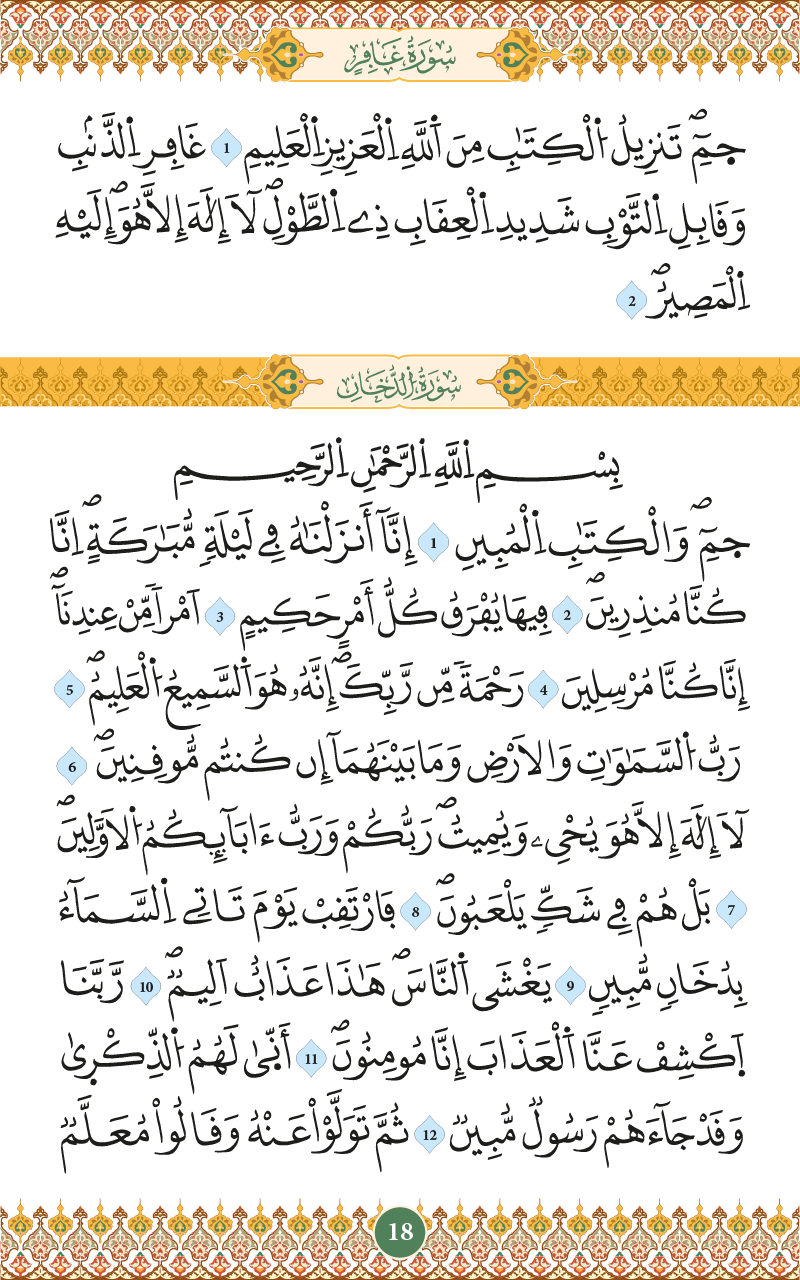 سُورَةُ غَافِرٍ
حَمِٓۖ تَنزِيلُ اُ۬لْكِتَٰبِ مِنَ اَ۬للَّهِ اِ۬لْعَزِيزِ اِ۬لْعَلِيمِ 1 غَافِرِ اِ۬لذَّنۢبِ
وَقَابِلِ اِ۬لتَّوْبِ شَدِيدِ اِ۬لْعِقَابِ ذِے اِ۬لطَّوْلِۖ لَآ إِلَٰهَ إِلَّا هُوَۖ إِلَيْهِ
اِ۬لْمَصِيرُۖ 2
سُورَةُ اُ۬لدُّخَانِ
بِسْمِ اِ۬للَّهِ اِ۬لرَّحْمَٰنِ اِ۬لرَّحِيمِ
حَمِٓۖ وَالْكِتَٰبِ اِ۬لْمُبِينِ 1 إِنَّآ أَنزَلْنَٰهُ فِے لَيْلَةٖ مُّبَٰرَكَةٍۖ اِنَّا
كُنَّا مُنذِرِينَۖ 2 فِيهَا يُفْرَقُ كُلُّ أَمْرٍ حَكِيمٍ 3 اَمْراٗ مِّنْ عِندِنَآۖ
إِنَّا كُنَّا مُرْسِلِينَ 4 رَحْمَةٗ مِّن رَّبِّكَۖ إِنَّهُۥ هُوَ اَ۬لسَّمِيعُ اُ۬لْعَلِيمُۖ 5
رَبُّ اُ۬لسَّمَٰوَٰتِ وَالَارْضِ وَمَا بَيْنَهُمَآ إِن كُنتُم مُّوقِنِينَۖ 6
لَآ إِلَٰهَ إِلَّا هُوَ يُحْيِۦ وَيُمِيتُۖ رَبُّكُمْ وَرَبُّ ءَابَآئِكُمُ اُ۬لَاوَّلِينَۖ
7 بَلْ هُمْ فِے شَكّٖ يَلْعَبُونَۖ 8 فَارْتَقِبْ يَوْمَ تَاتِے اِ۬لسَّمَآءُ
بِدُخَانٖ مُّبِينٖ 9 يَغْشَى اَ۬لنَّاسَۖ هَٰذَا عَذَابٌ اَلِيمٞۖ 10 رَّبَّنَا
اَ۪كْشِفْ عَنَّا اَ۬لْعَذَابَ إِنَّا مُومِنُونَۖ 11 أَنّ۪يٰ لَهُمُ اُ۬لذِّكْر۪يٰ
وَقَدْ جَآءَهُمْ رَسُولٞ مُّبِينٞ 12 ثُمَّ تَوَلَّوْاْ عَنْهُ وَقَالُواْ مُعَلَّمٞ
18